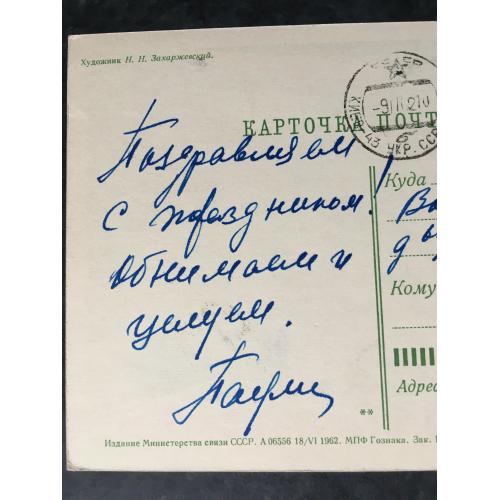 Художник Н. Н. Захаржевский.
КАРТОЧКА ПОЧТ
43 УКР. ССР
Поздравляем
с праздником!
Обнимаем и
целуем.
Куда
Кому
Адрес
**
Издание Министерства связи СССР. А 06556 18/VI 1962. МПФ Гознака. Зак.